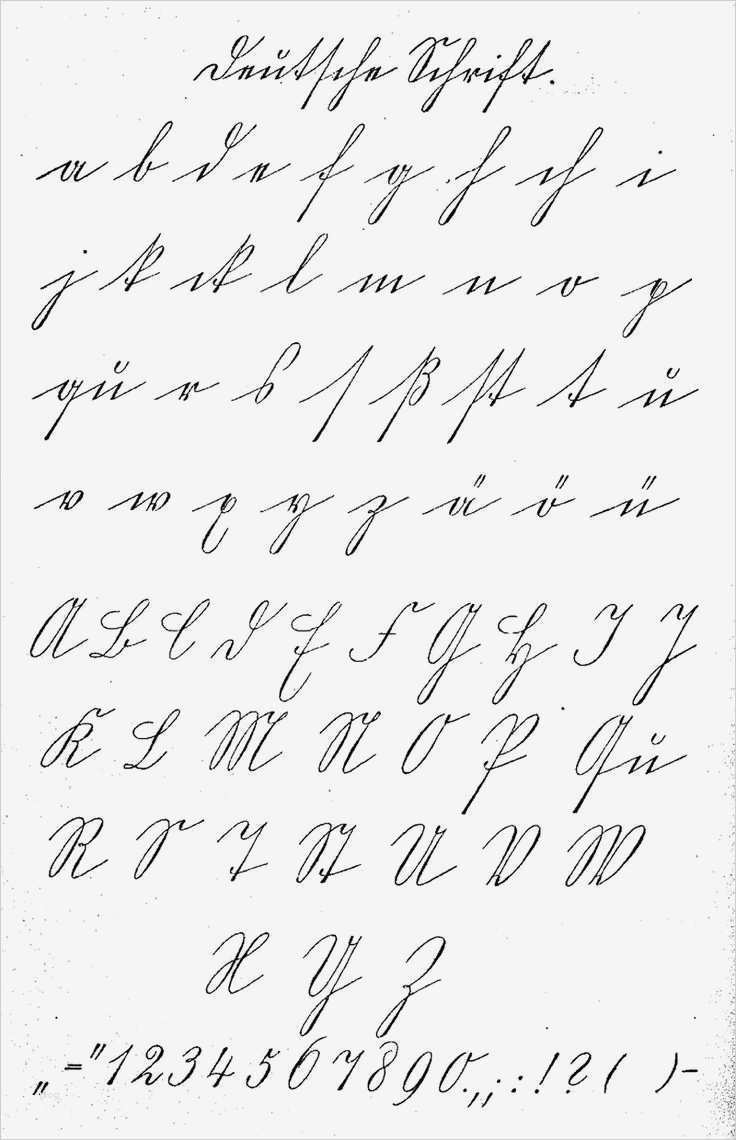 Deutſche Schrift.
a b d e f g h ch i
j k ck l m n o p
qu r s ſ ß ſt t u
v w x y z ä ö ü
A B C D E F G H I J
K L M N O P Qu
R S T St U V W
X Y Z
„ = " 1 2 3 4 5 6 7 8 9 0 . , ; : ! ? ( ) -